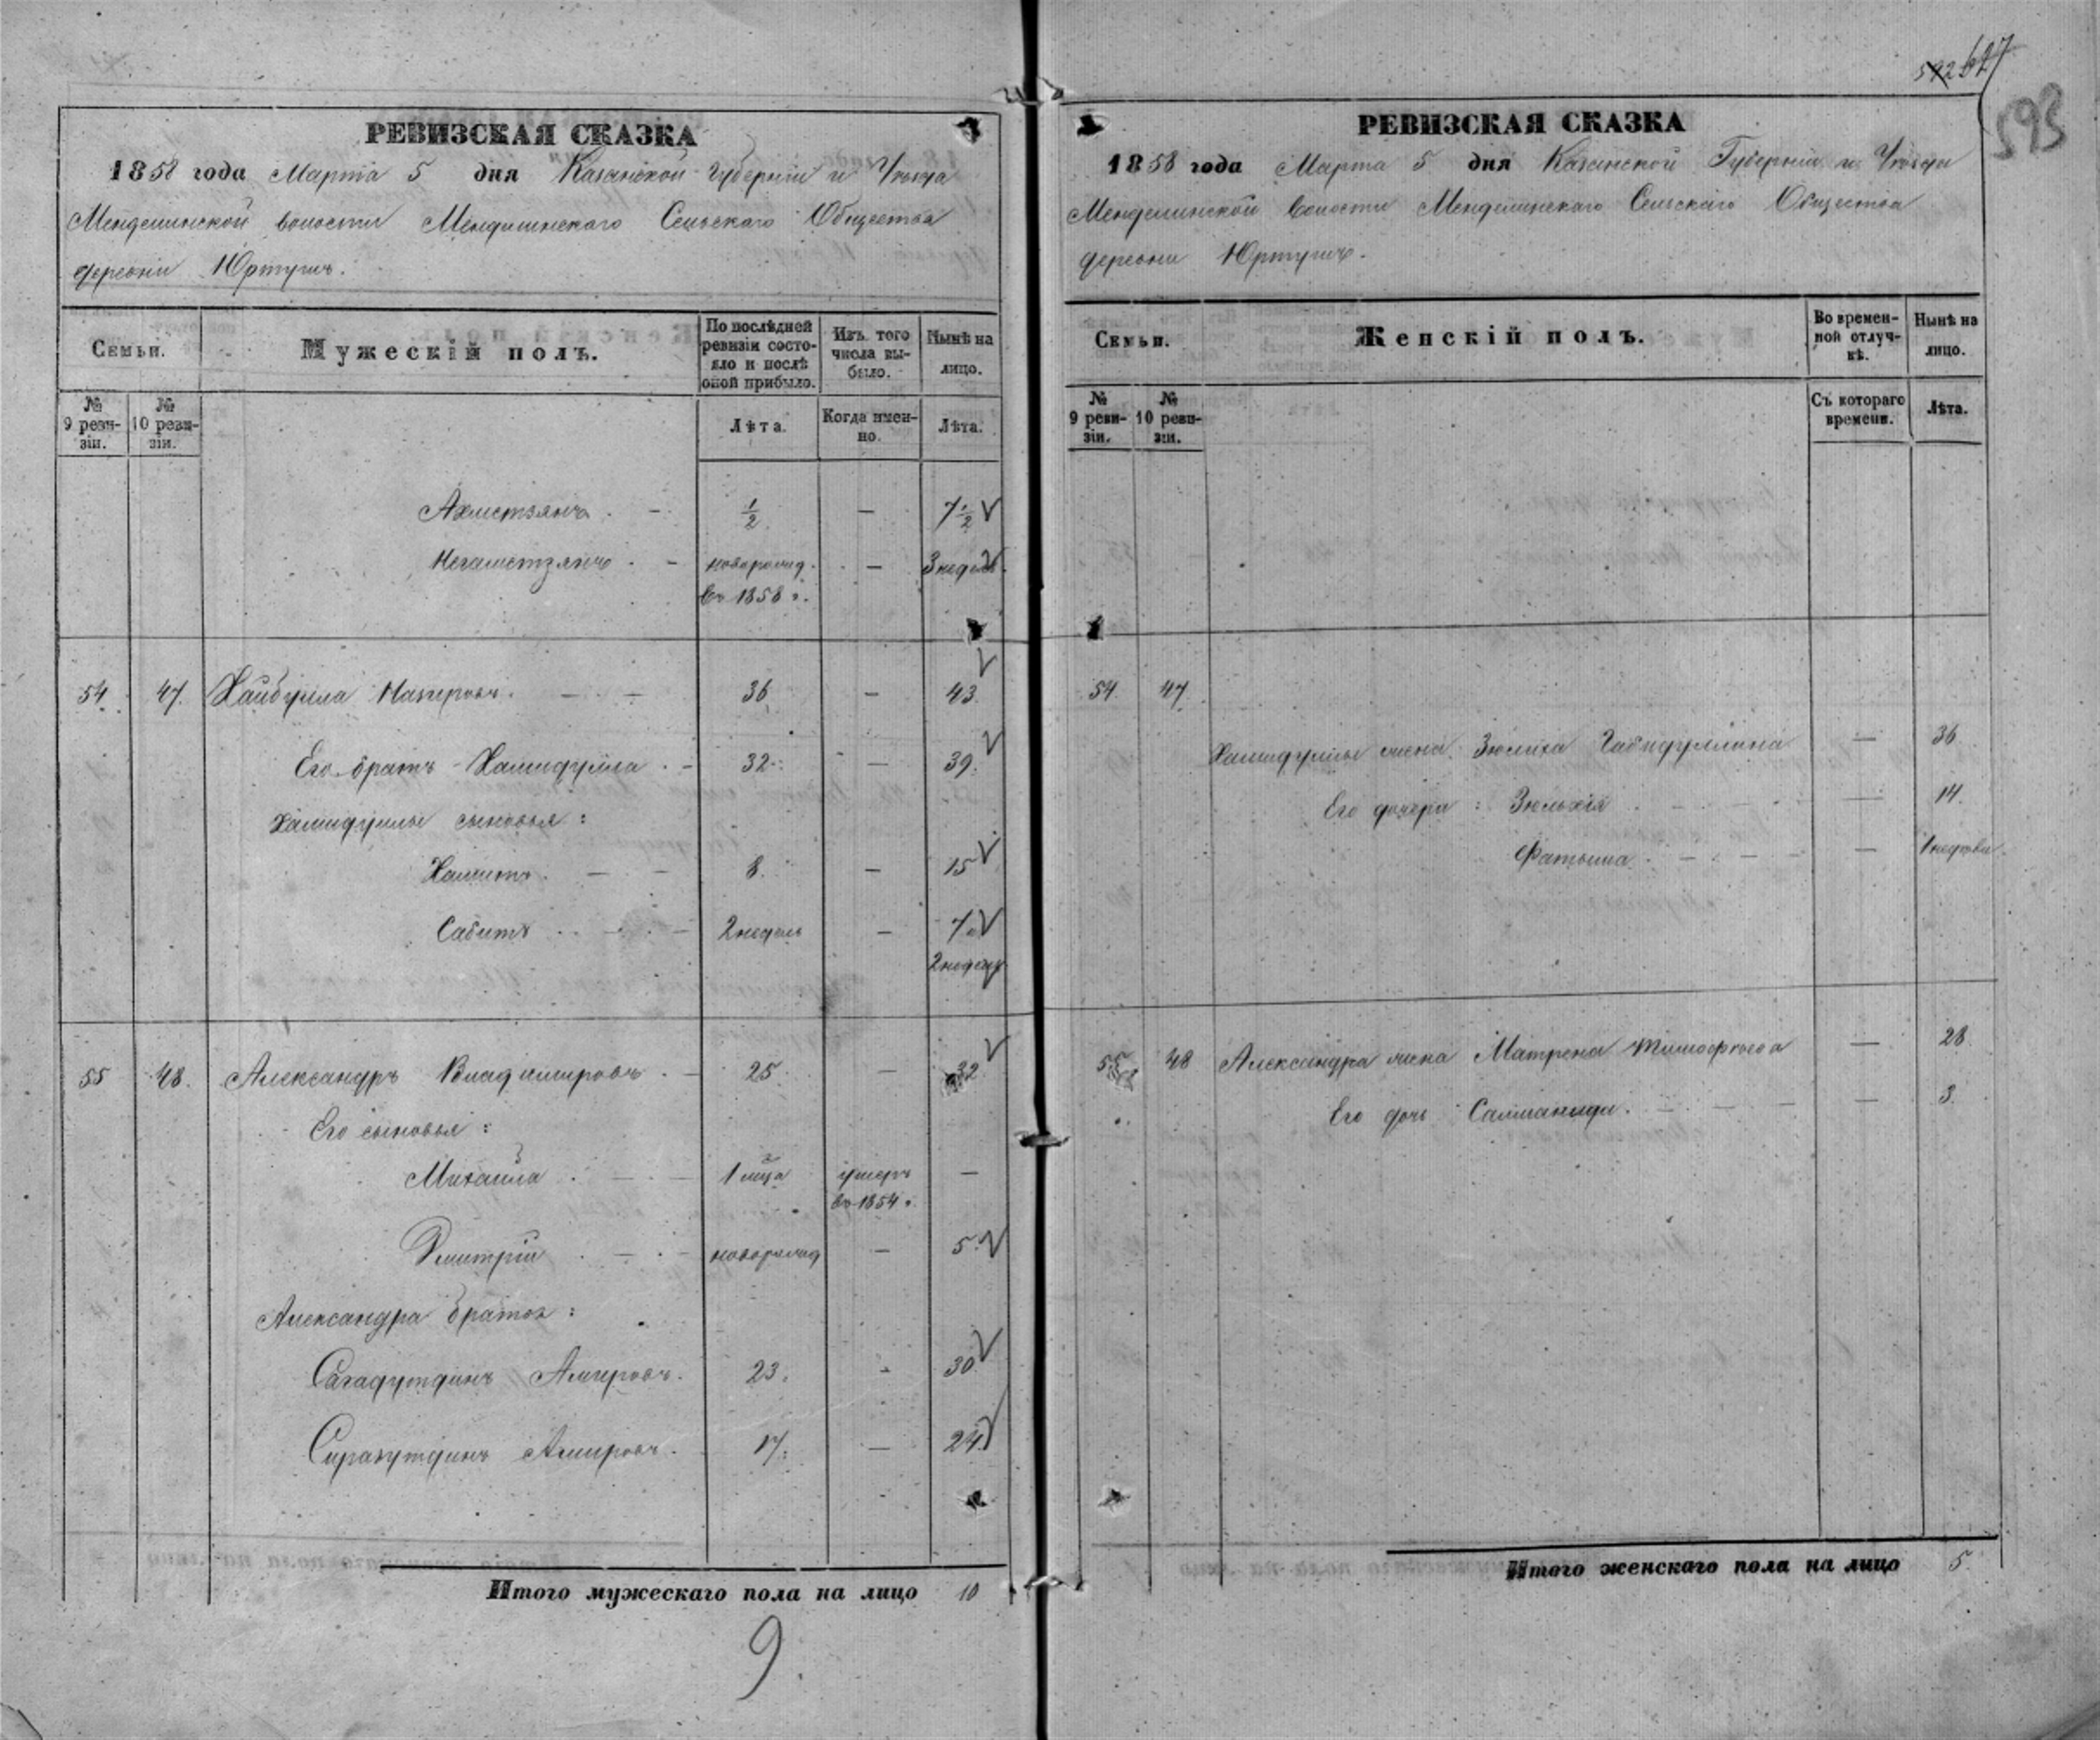 592 627
593
РЕВИЗСКАЯ СКАЗКА
1858 года Марта 5 дня Казанской Губерніи и Уѣзда
Менделинской волости Менделинскаго Сельскаго Общества
деревни Юртушъ.
Семьи.
Мужескій полъ.
По послѣдней ревизіи состояло и послѣ оной прибыло.
Изъ того числа выбыло.
Нынѣ на лицо.
№ 9 ревизіи.
№ 10 ревизіи.
Лѣта.
Когда именно.
Лѣта.
Ахметзянъ. — 1/2 — 7 1/2
Негаметзянъ. — новорожд. — 3 недѣль.
въ 1858 г.
54. 47. Хайбулла Назировъ. — 36 — 43
Его братъ Хамидулла. — 32 — 39.
Хамидуллы сыновья:
Хамитъ. — 8. — 15
Сабитъ — 2 недѣль — 7 и
2 недѣль
55 48. Александръ Владимировъ. — 25 — 32
Его сыновья:
Михайла — 1 мца умеръ —
въ 1854 г.
Дмитрій — новорожд — 5.
Александра братья:
Сагадутдинъ Амировъ. 23. — 30
Сиразутдинъ Амировъ. 17. — 24
Итого мужескаго пола на лицо 10
9.
РЕВИЗСКАЯ СКАЗКА
1858 года Марта 5 дня Казанской Губерніи и Уѣзда
Менделинской волости Менделинскаго Сельскаго Общества
деревни Юртушъ.
Семьи.
Женскій полъ.
Во временной отлучкѣ.
Нынѣ на лицо.
№ 9 ревизіи.
№ 10 ревизіи.
Съ котораго времени.
Лѣта.
54. 47
Хамидуллы жена Зюлиха Габидуллина — 36
Его дочери: Зюльхія — 14.
Фатыма. — 1 недѣли
55 48 Александра жена Матрена Тимофѣева — 28.
Его дочь — 3.
Итого женскаго пола на лицо 5